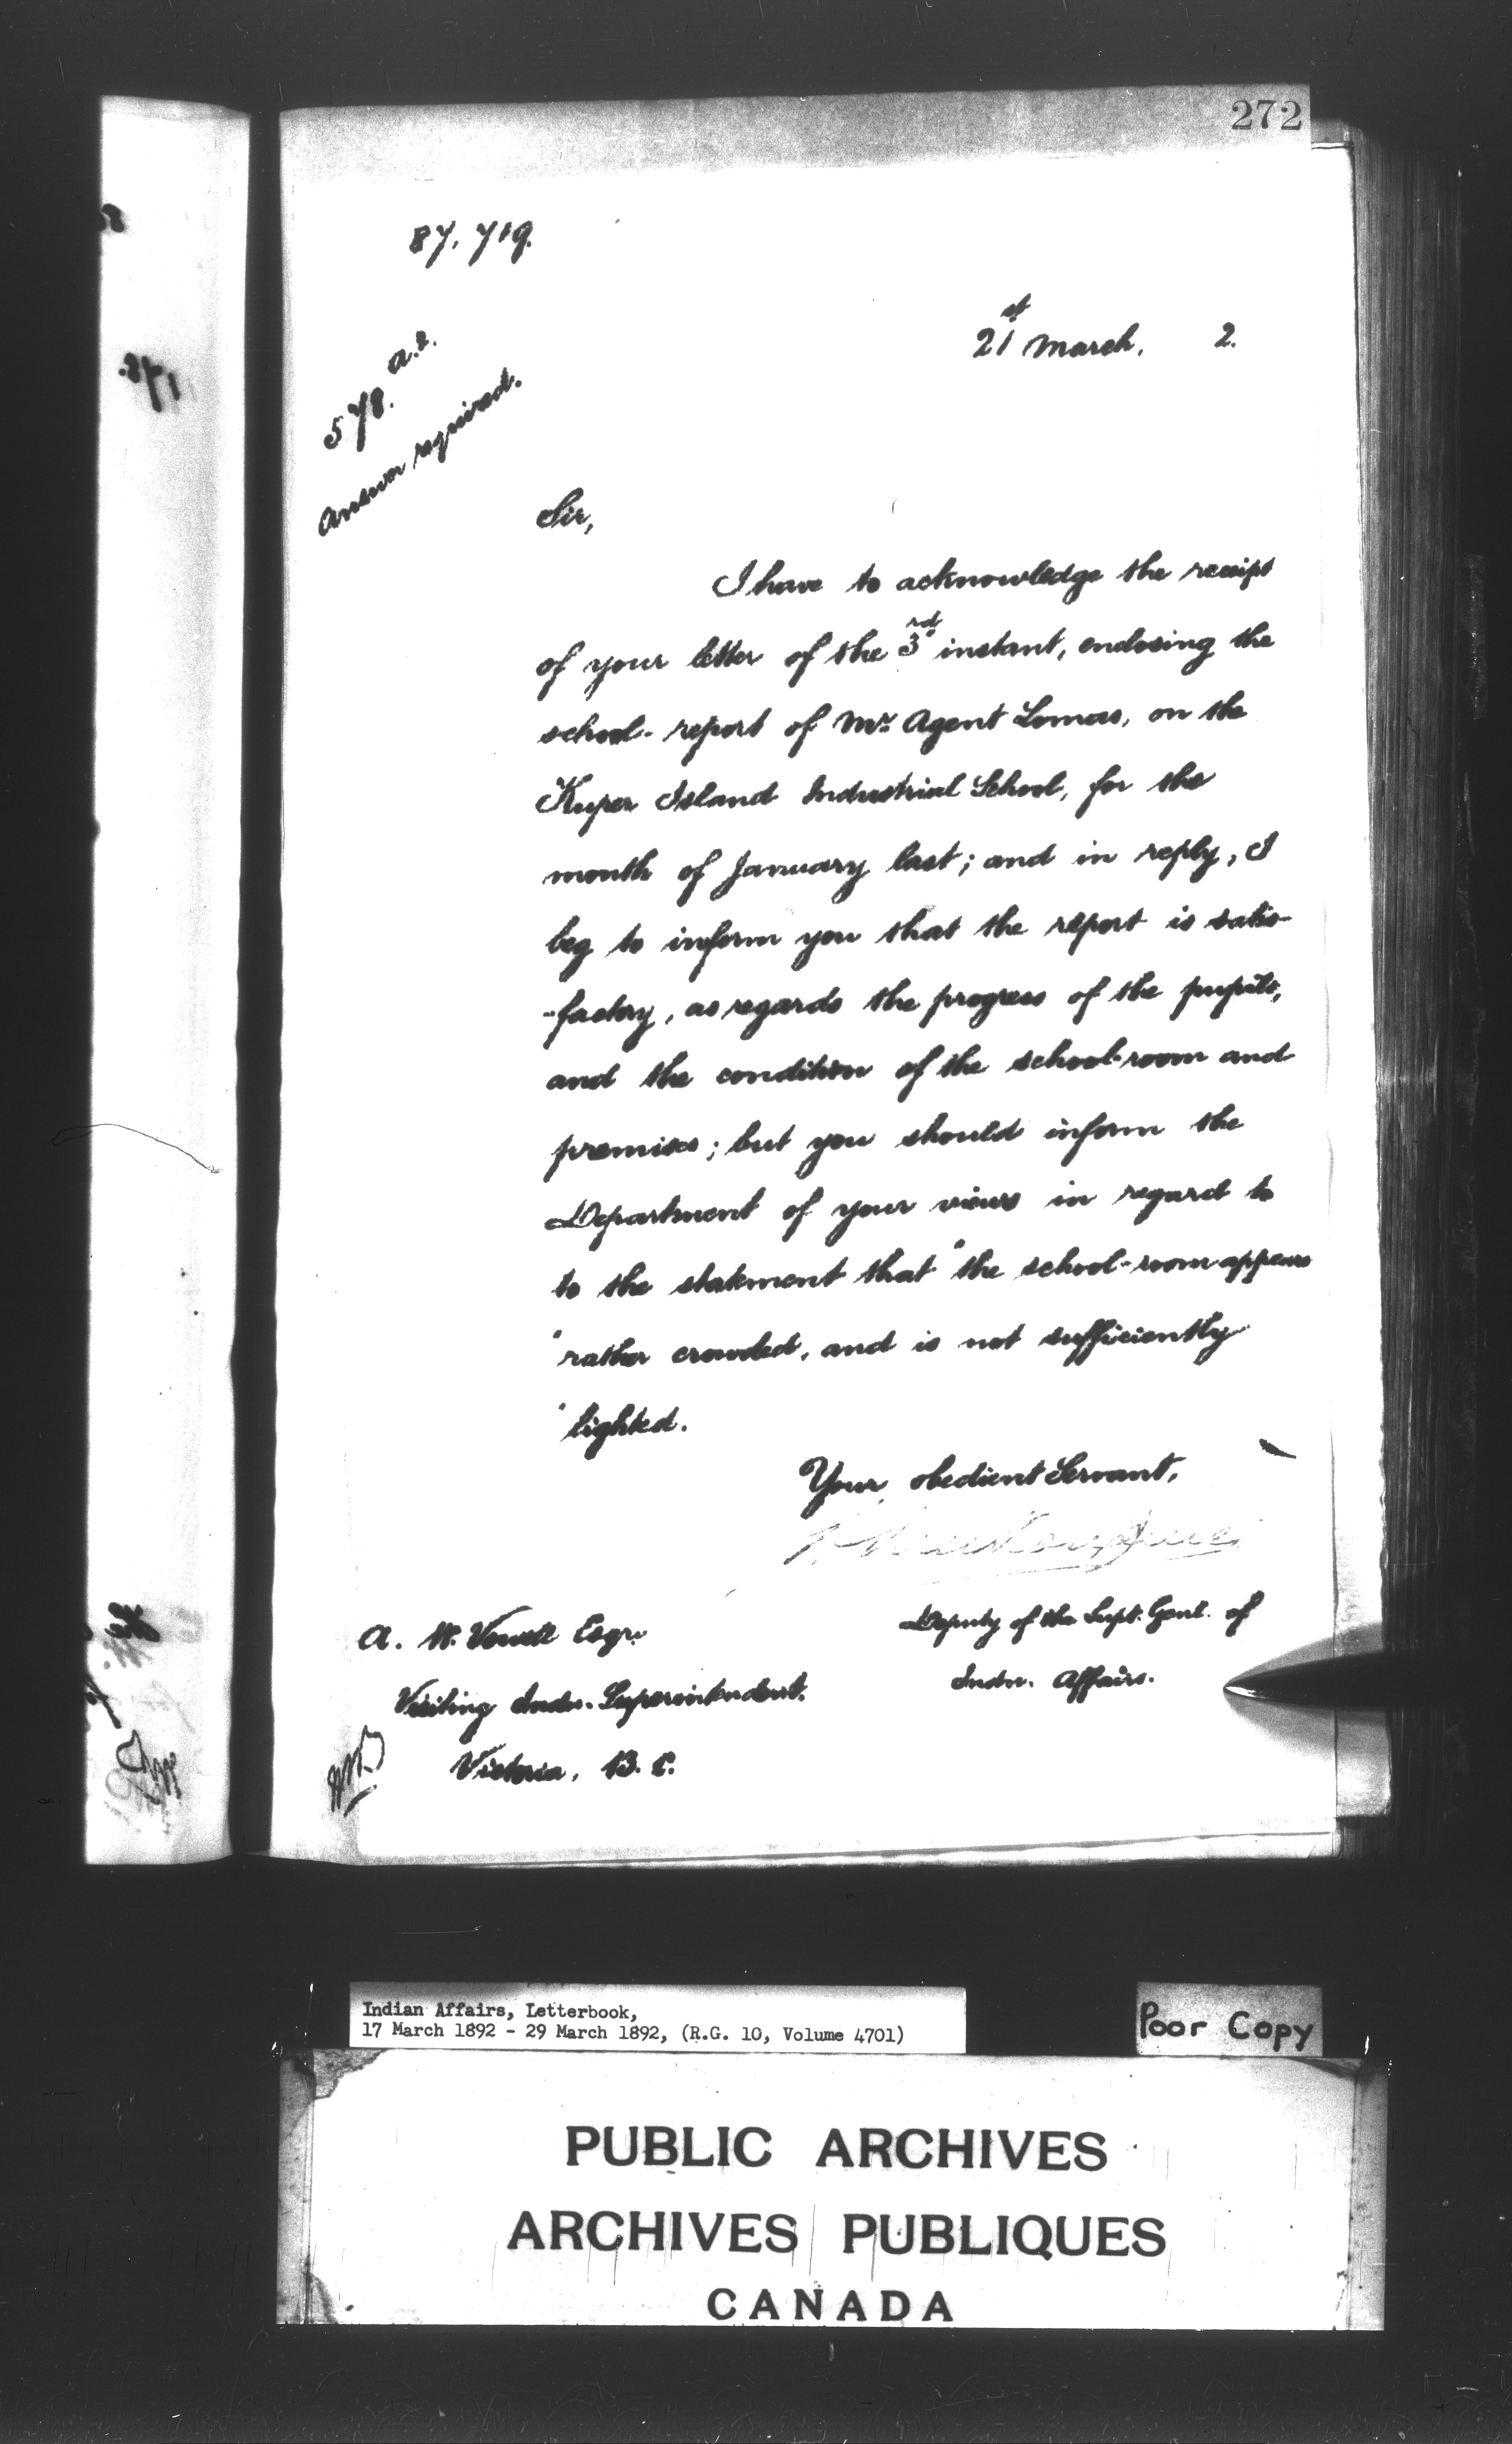 272
87,719.
21st March, 2.
578. a.2.
Answer required.
Sir,
I have to acknowledge the receipt
of your letter of the 3rd instant, enclosing the
school-report of Mr. Agent Lomas, on the
Kuper Island Industrial School, for the
month of January last; and in reply, I
beg to inform you that the report is satis-
-factory, as regards the progress of the pupils,
and the condition of the school-room and
premises; but you should inform the
Department of your views in regard to
to the statement that "the school-room appears
"rather crowded, and is not sufficiently
"lighted.
Your obedient Servant,
Deputy of the Supt. Genl. of
Indn. Affairs.
A. W. Vowell Esqr.
Visiting Indn. Superintendent.
Victoria, B.C.
Indian Affairs, Letterbook,
17 March 1892 - 29 March 1892, (R.G. 10, Volume 4701)
Poor Copy
PUBLIC ARCHIVES
ARCHIVES PUBLIQUES
CANADA